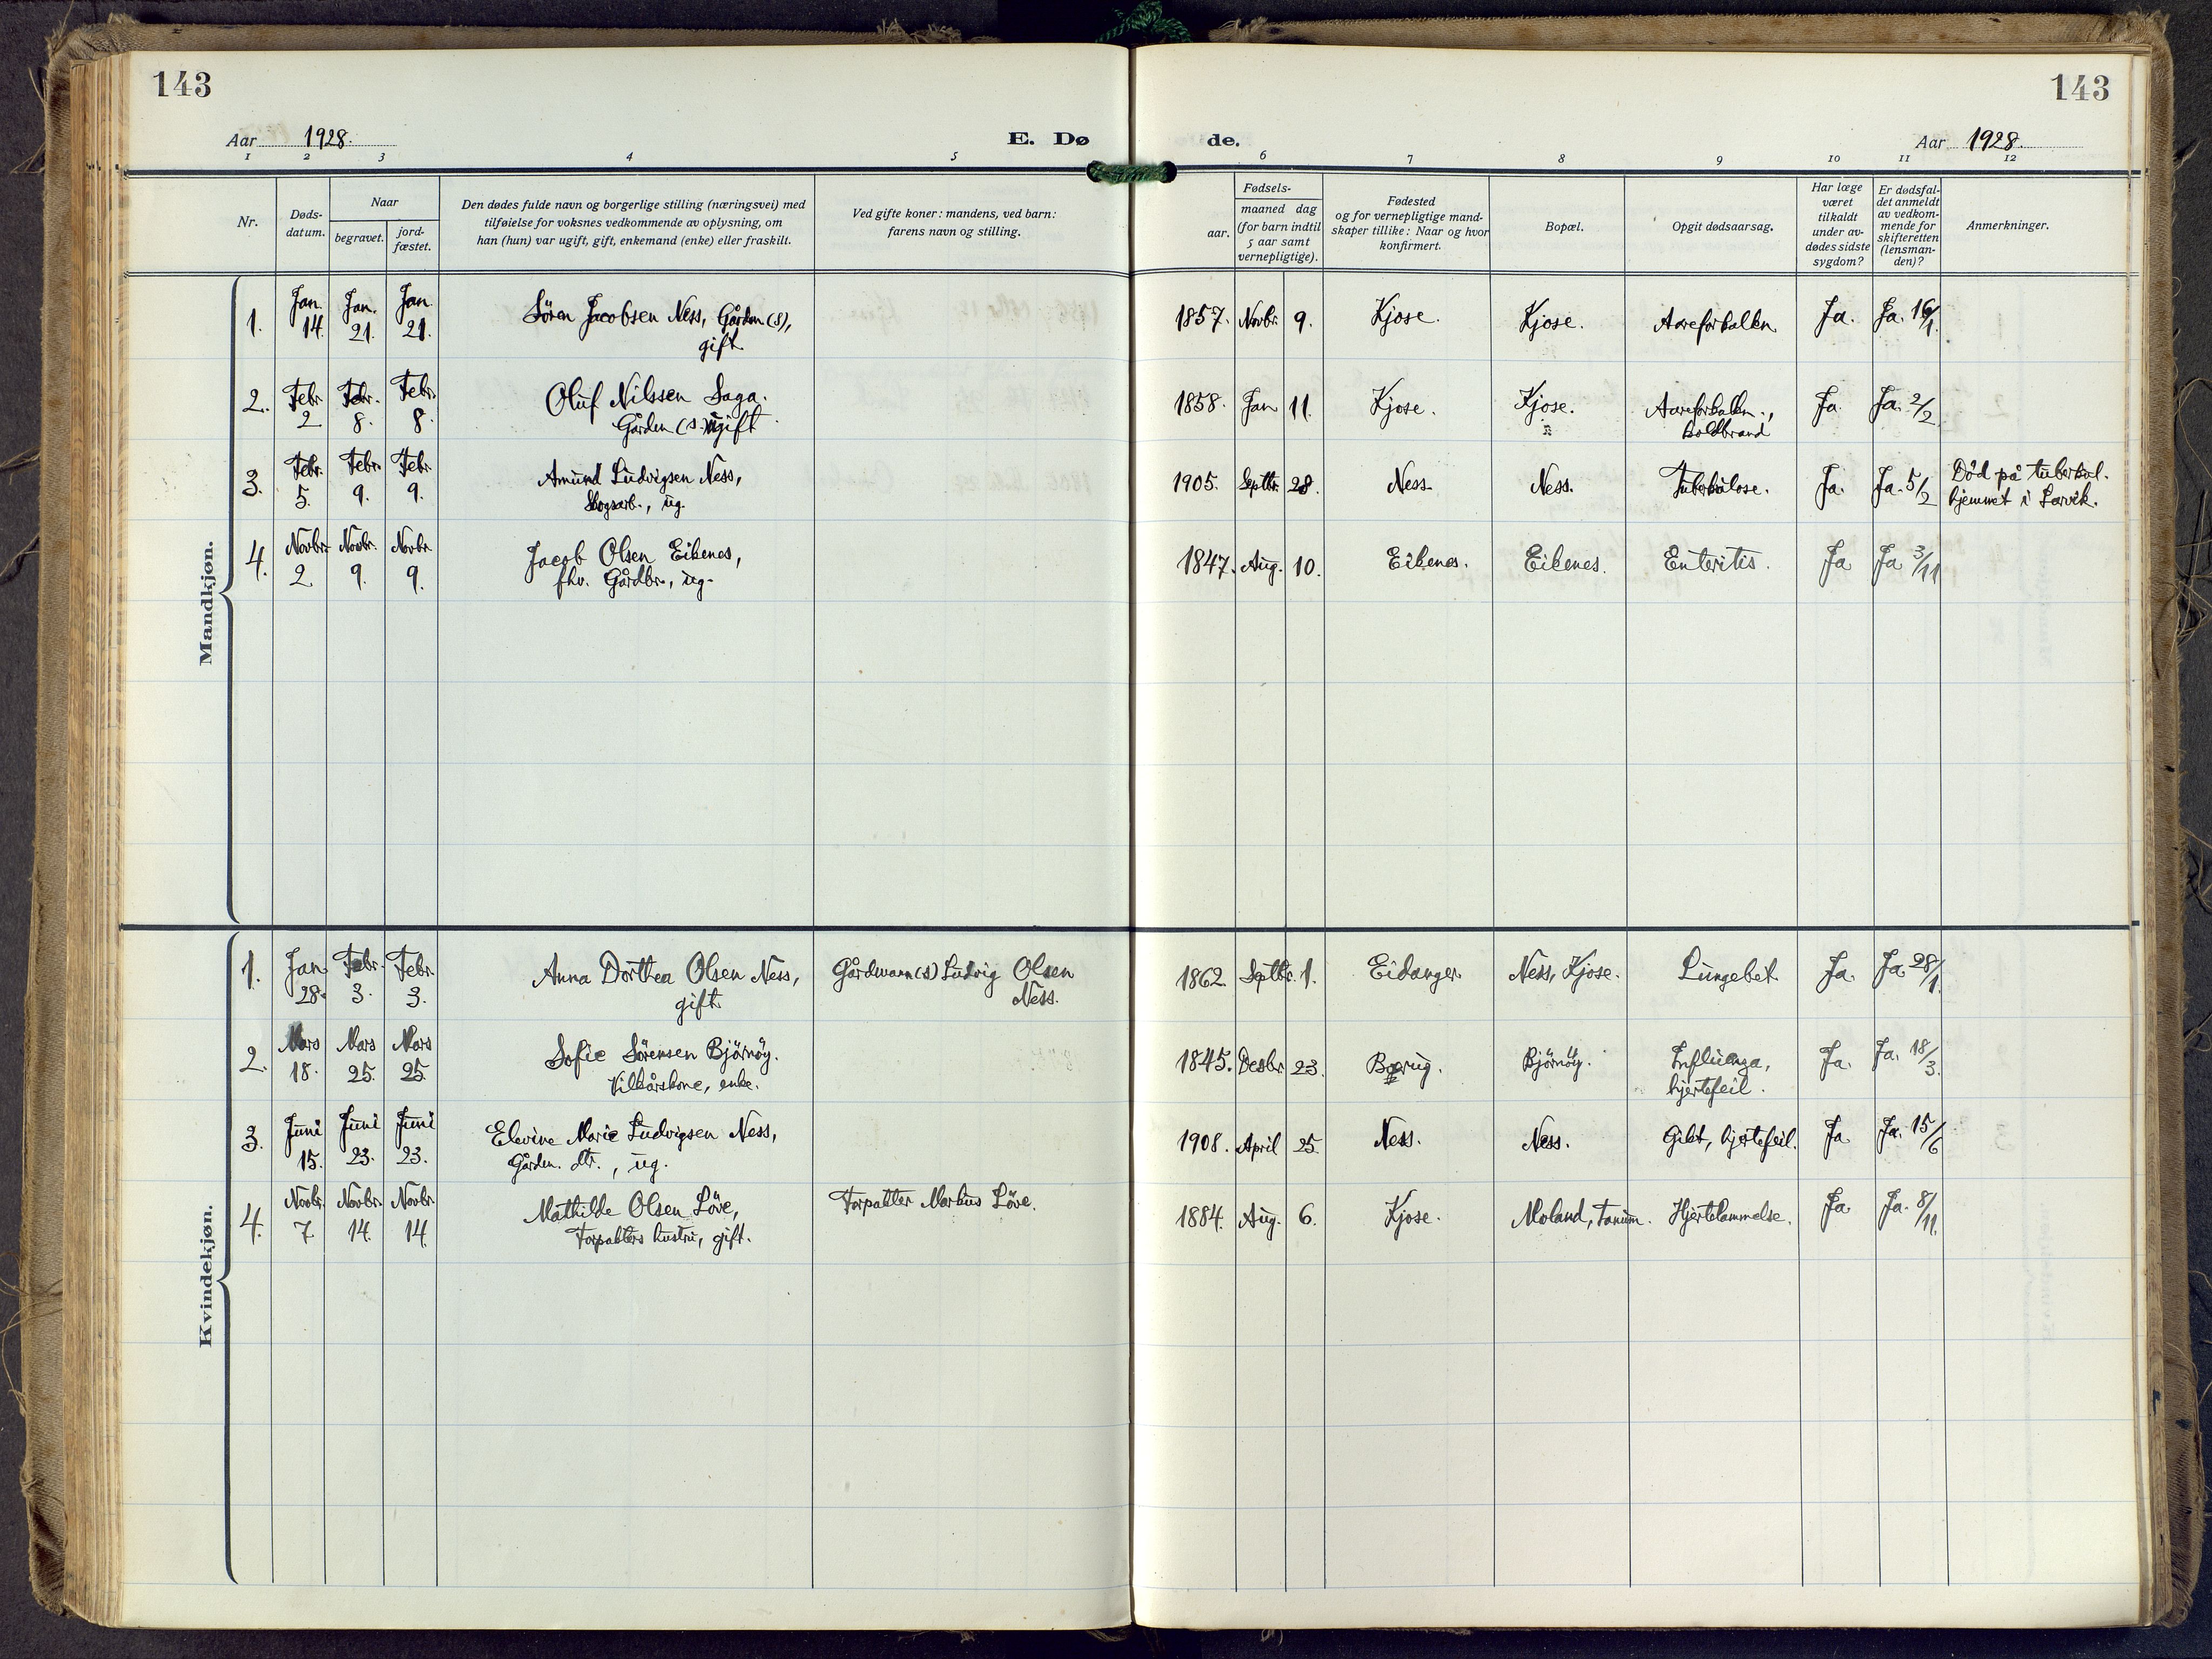 143
143
Aar 1928.
E. Dø
de.
Aar 1928.
1 2 3 4 5 6 7 8 9 10 11 12
Nr.
Døds-
datum.
Naar
begravet.
jord-
fæstet.
Den dødes fulde navn og borgerlige stilling (næringsvei) med
tilføielse for voksnes vedkommende av oplysning, om
han (hun) var ugift, gift, enkemand (enke) eller fraskilt.
Ved gifte koner: mandens, ved barn:
farens navn og stilling.
Fødsels-
aar.
maaned dag
(for barn indtil
5 aar samt
vernepligtige).
Fødested
og for vernepligtige mand-
skaper tillike: Naar og hvor
konfirmert.
Bopæl.
Opgit dødsaarsag.
Har læge
været
tilkaldt
under av-
dødes sidste
sygdom?
Er dødsfal-
det anmeldt
av vedkom-
mende for
skifteretten
(lensman-
den)?
Anmerkninger.
Mandkjøn.
1. Jan. 14. Jan. 21. Jan. 21. Søren Jacobsen Ness, Gårdm (s), 1857. Novbr. 9. Kjose. Kjose. Aareforkalkn. Ja. Ja. 16/1.
gift.
2. Febr. 2 Febr. 8. Febr. 8. Oluf Nilssen Saga. 1858. Jan 11. Kjose. Kjose. Aareforkalkn., Ja. Ja. 2/2
Gårdm (s.) ugift koldbrand
3. Febr. 5. Febr. 9. Febr. 9. Amund Ludvigsen Ness, 1905. Septbr. 28. Ness. Ness. Tuberkulose. Ja. Ja. 5/2 Död på tuberkul.
Skogsarb., ug. hjemmet i Larvik.
4. Novbr. 2 Novbr. 9. Novbr. 9. Jacob Olsen Eikenes, 1847. Aug. 10. Eikenes. Eikenes. Enteritis. Ja Ja 3/11
fhv. Gårdbr., ug.
Kvindekjøn.
1. Jan 28. Febr. 3. Febr. 3. Anna Dorthea Olsen Ness, Gårdmann (s) Ludvig Olsen 1862. Septbr. 1. Eidanger. Ness, Kjose. Lungebet. Ja. Ja 28/1.
gift. Ness.
2. Mars 18. Mars 25. Mars 25. Sofie Sørensen Bjørnøy. 1845. Desbr. 23. Bjørnøy. Influenza, Ja. Ja. 18/3.
Vilkårskone, enke. hjertefeil.
3. Juni 15. Juni 23. Juni 23. Elevine Marie Ludvigsen Ness, 1908. April 25. Ness. Ness. Gikt, hjertefeil. Ja Ja. 15/6
Gårdm. dtr., ug.
4. Novbr. 7. Novbr. 14. Novbr. 14. Mathilde Olsen Löve, Forpakter Markus Löve. 1884. Aug. 6. Kjose. Moland, Tanum. Hjertelammelse. Ja Ja. 8/11.
Forpakters hustru, gift.